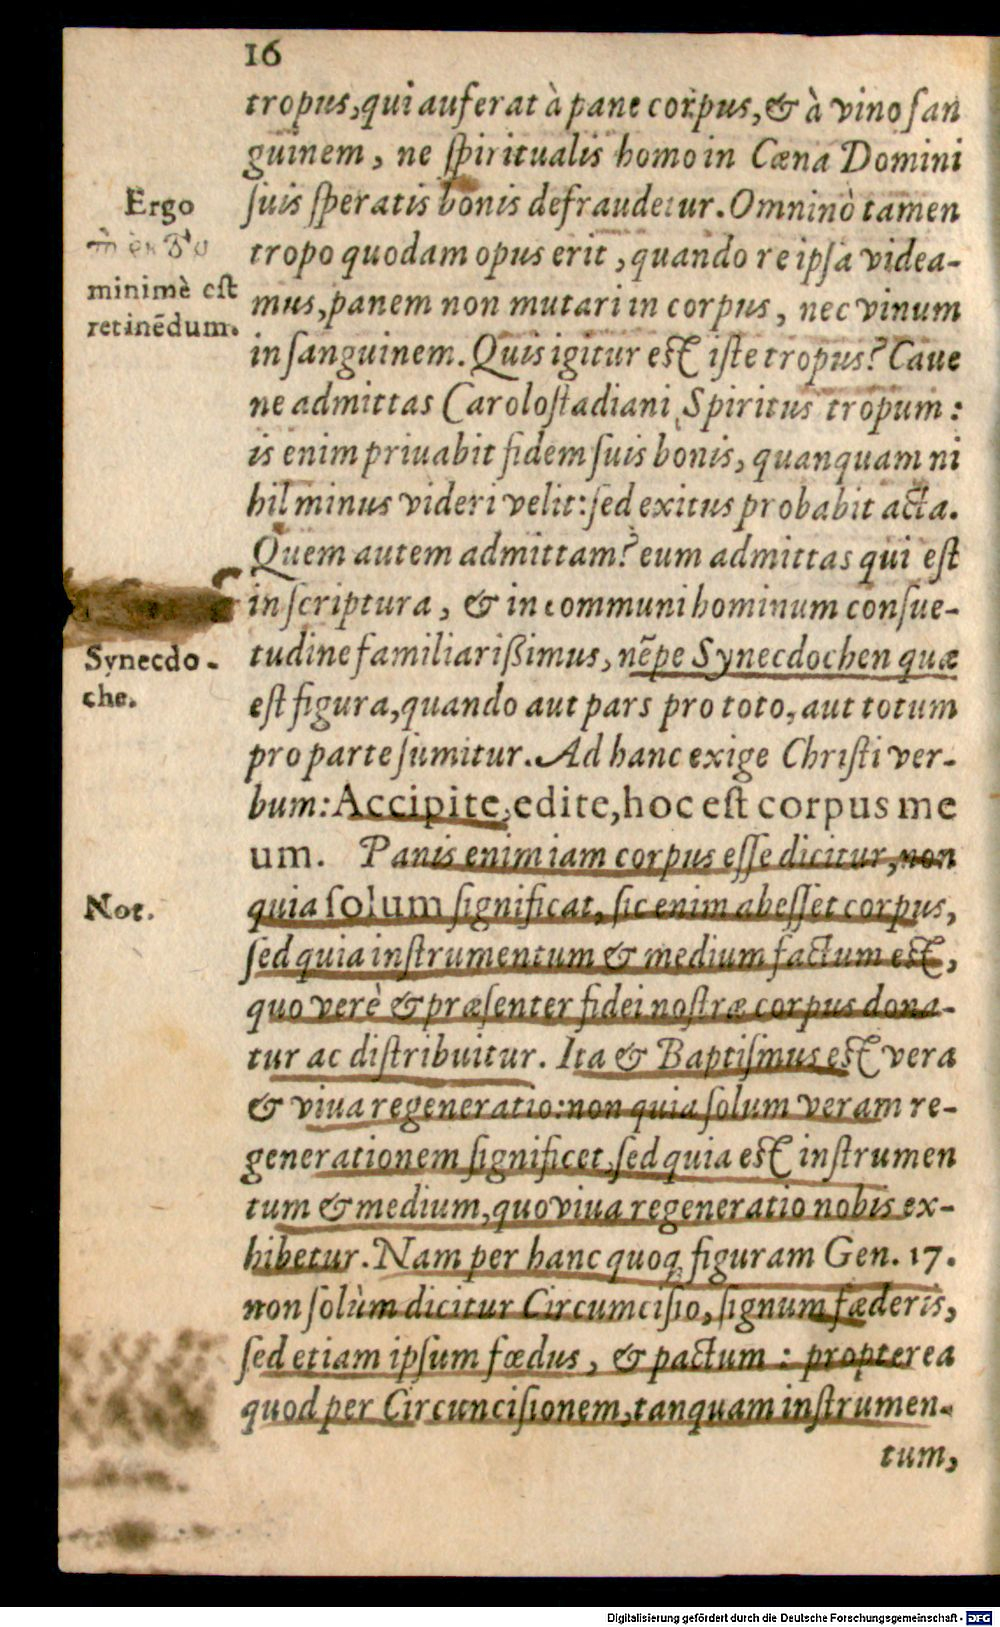 16
tropus, qui auferat à pane corpus, & à vino san
guinem, ne spiritualis homo in Cæna Domini
Ergo
suis speratis bonis defraudetur. Omninò tamen
tropo quodam opus erit, quando re ipsa videa-
minimè est
mus, panem non mutari in corpus, nec vinum
retinēdum.
in sanguinem. Quis igitur est iste tropus? Caue
ne admittas Carolostadiani Spiritus tropum:
is enim priuabit fidem suis bonis, quanquam ni
hil minus videri velit: sed exitus probabit acta.
Quem autem admittam? eum admittas qui est
in scriptura, & in communi hominum consue-
Synecdo-
tudine familiarißimus, nēpe Synecdochen quæ
che.
est figura, quando aut pars pro toto, aut totum
pro parte sumitur. Ad hanc exige Christi ver-
bum: Accipite, edite, hoc est corpus me
um. Panis enim iam corpus esse dicitur, non
Not.
quia solum significat, sic enim abesset corpus,
sed quia instrumentum & medium factum est,
quo verè & præsenter fidei nostræ corpus dona-
tur ac distribuitur. Ita & Baptismus est vera
& viua regeneratio: non quia solum veram re-
generationem significet, sed quia est instrumen
tum & medium, quo viua regeneratio nobis ex-
hibetur. Nam per hanc quoq; figuram Gen. 17.
non solùm dicitur Circumcisio, signum fæderis,
sed etiam ipsum fœdus, & pactum: propterea
quod per Circuncisionem, tanquam instrumen-
tum,
Digitalisierung gefördert durch die Deutsche Forschungsgemeinschaft - DFG